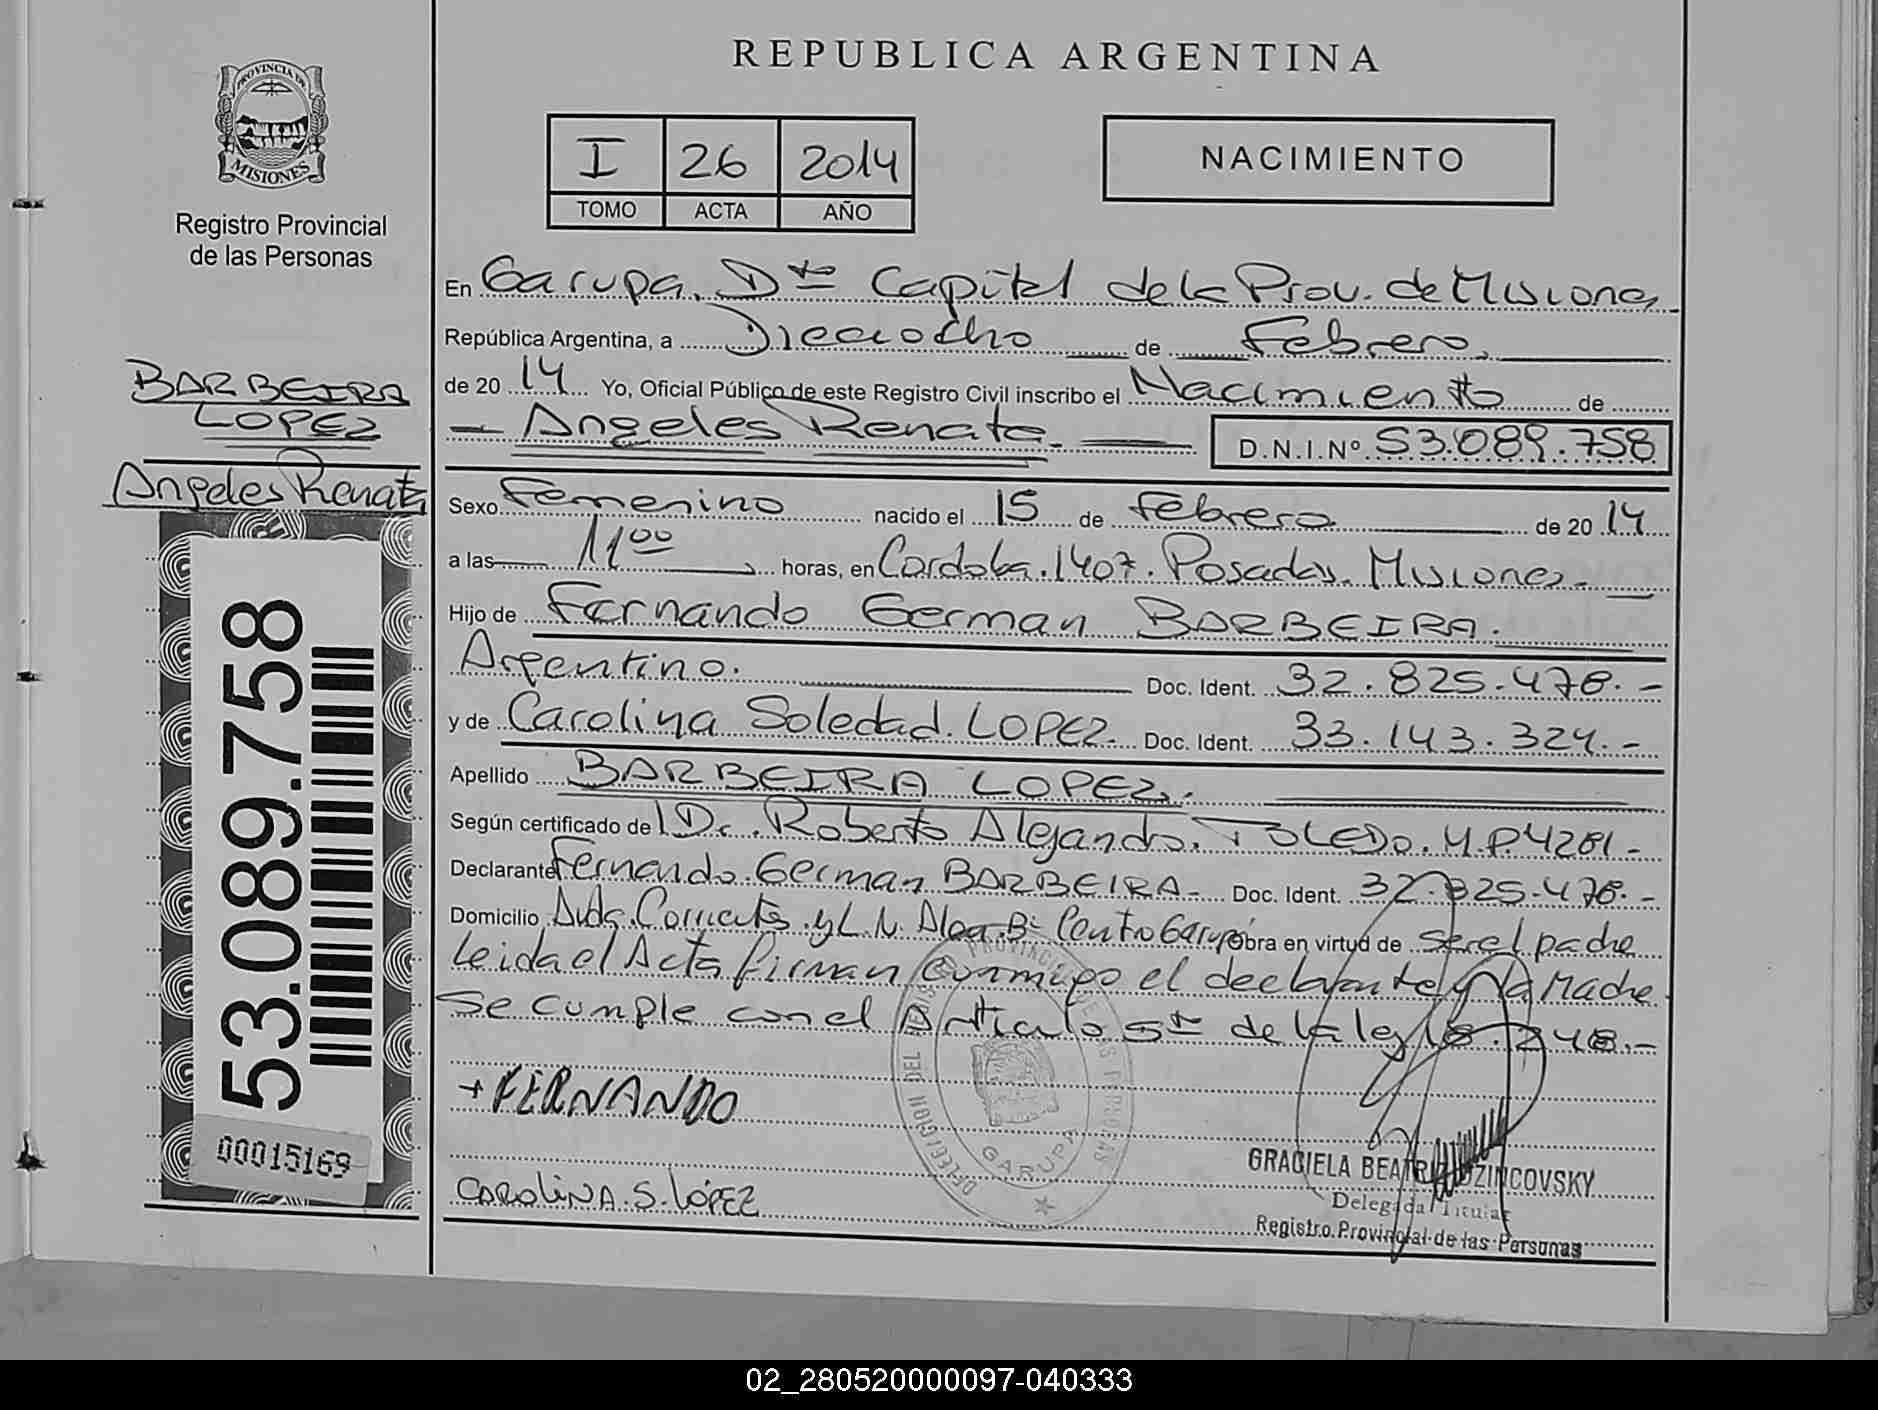 PROVINCIA DE
MISIONES
Registro Provincial
de las Personas
BARBEIRA
LOPEZ
Angeles Renata
53.089.758
00015169
REPUBLICA ARGENTINA
I 26 2014
TOMO ACTA AÑO
NACIMIENTO
En Garupa, Dto Capital de la Prov. de Misiones
República Argentina, a Dieciocho de Febrero,
de 20 14 Yo, Oficial Público de este Registro Civil inscribo el Nacimiento de
Angeles Renata. D.N.I.Nº 53.089.758
Sexo Femenino nacido el 15 de Febrero de 20 14
a las 11 00 horas, en Cordoba. 1407. Posadas. Misiones.
Hijo de Fernando German BARBEIRA.
Argentino. Doc. Ident. 32.825.478.-
y de Carolina Soledad LOPEZ. Doc. Ident. 33.143.324.-
Apellido BARBEIRA LOPEZ.
Según certificado de Dr. Roberto Alejandro. TOLEDO. M.P. 4281-
Declarante Fernando German BARBEIRA- Doc. Ident. 32.825.478.-
Domicilio Avda. Corrientes y L.N. Alem Bº Centro Garupá obra en virtud de ser el padre
Leida el Acta firman conmigo el declarante y la Madre
Se cumple con el Articulo 5to de la ley 18.248.-
+ FERNANDO
CAROLINA. S. LÓPEZ
DELEGACION DEL REGISTRO PROVINCIAL DE LAS PERSONAS
GARUPA
GRACIELA BEATRIZ
Delegada Titular
Registro Provincial de las Personas
02_280520000097-040333